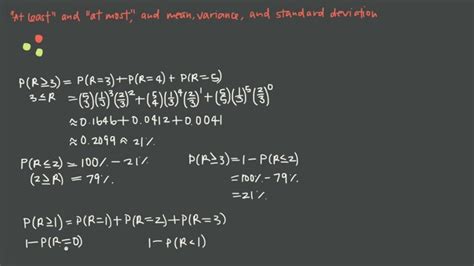 "At least" and "at most," and mean, variance, and standard deviation
P(R≥3) = P(R=3) + P(R=4) + P(R=5)
3≤R = (5 3)(1/3)^3(2/3)^2 + (5 4)(1/3)^4(2/3)^1 + (5 5)(1/3)^5(2/3)^0
≈ 0.1646 + 0.0412 + 0.0041
≈ 0.2099 ≈ 21%
P(R≤2) = 100% - 21% P(R≥3) = 1 - P(R≤2)
(2≥R) = 79% = 100% - 79%
= 21%
P(R≥1) = P(R=1) + P(R=2) + P(R=3)
1 - P(R=0) 1 - P(R<1)